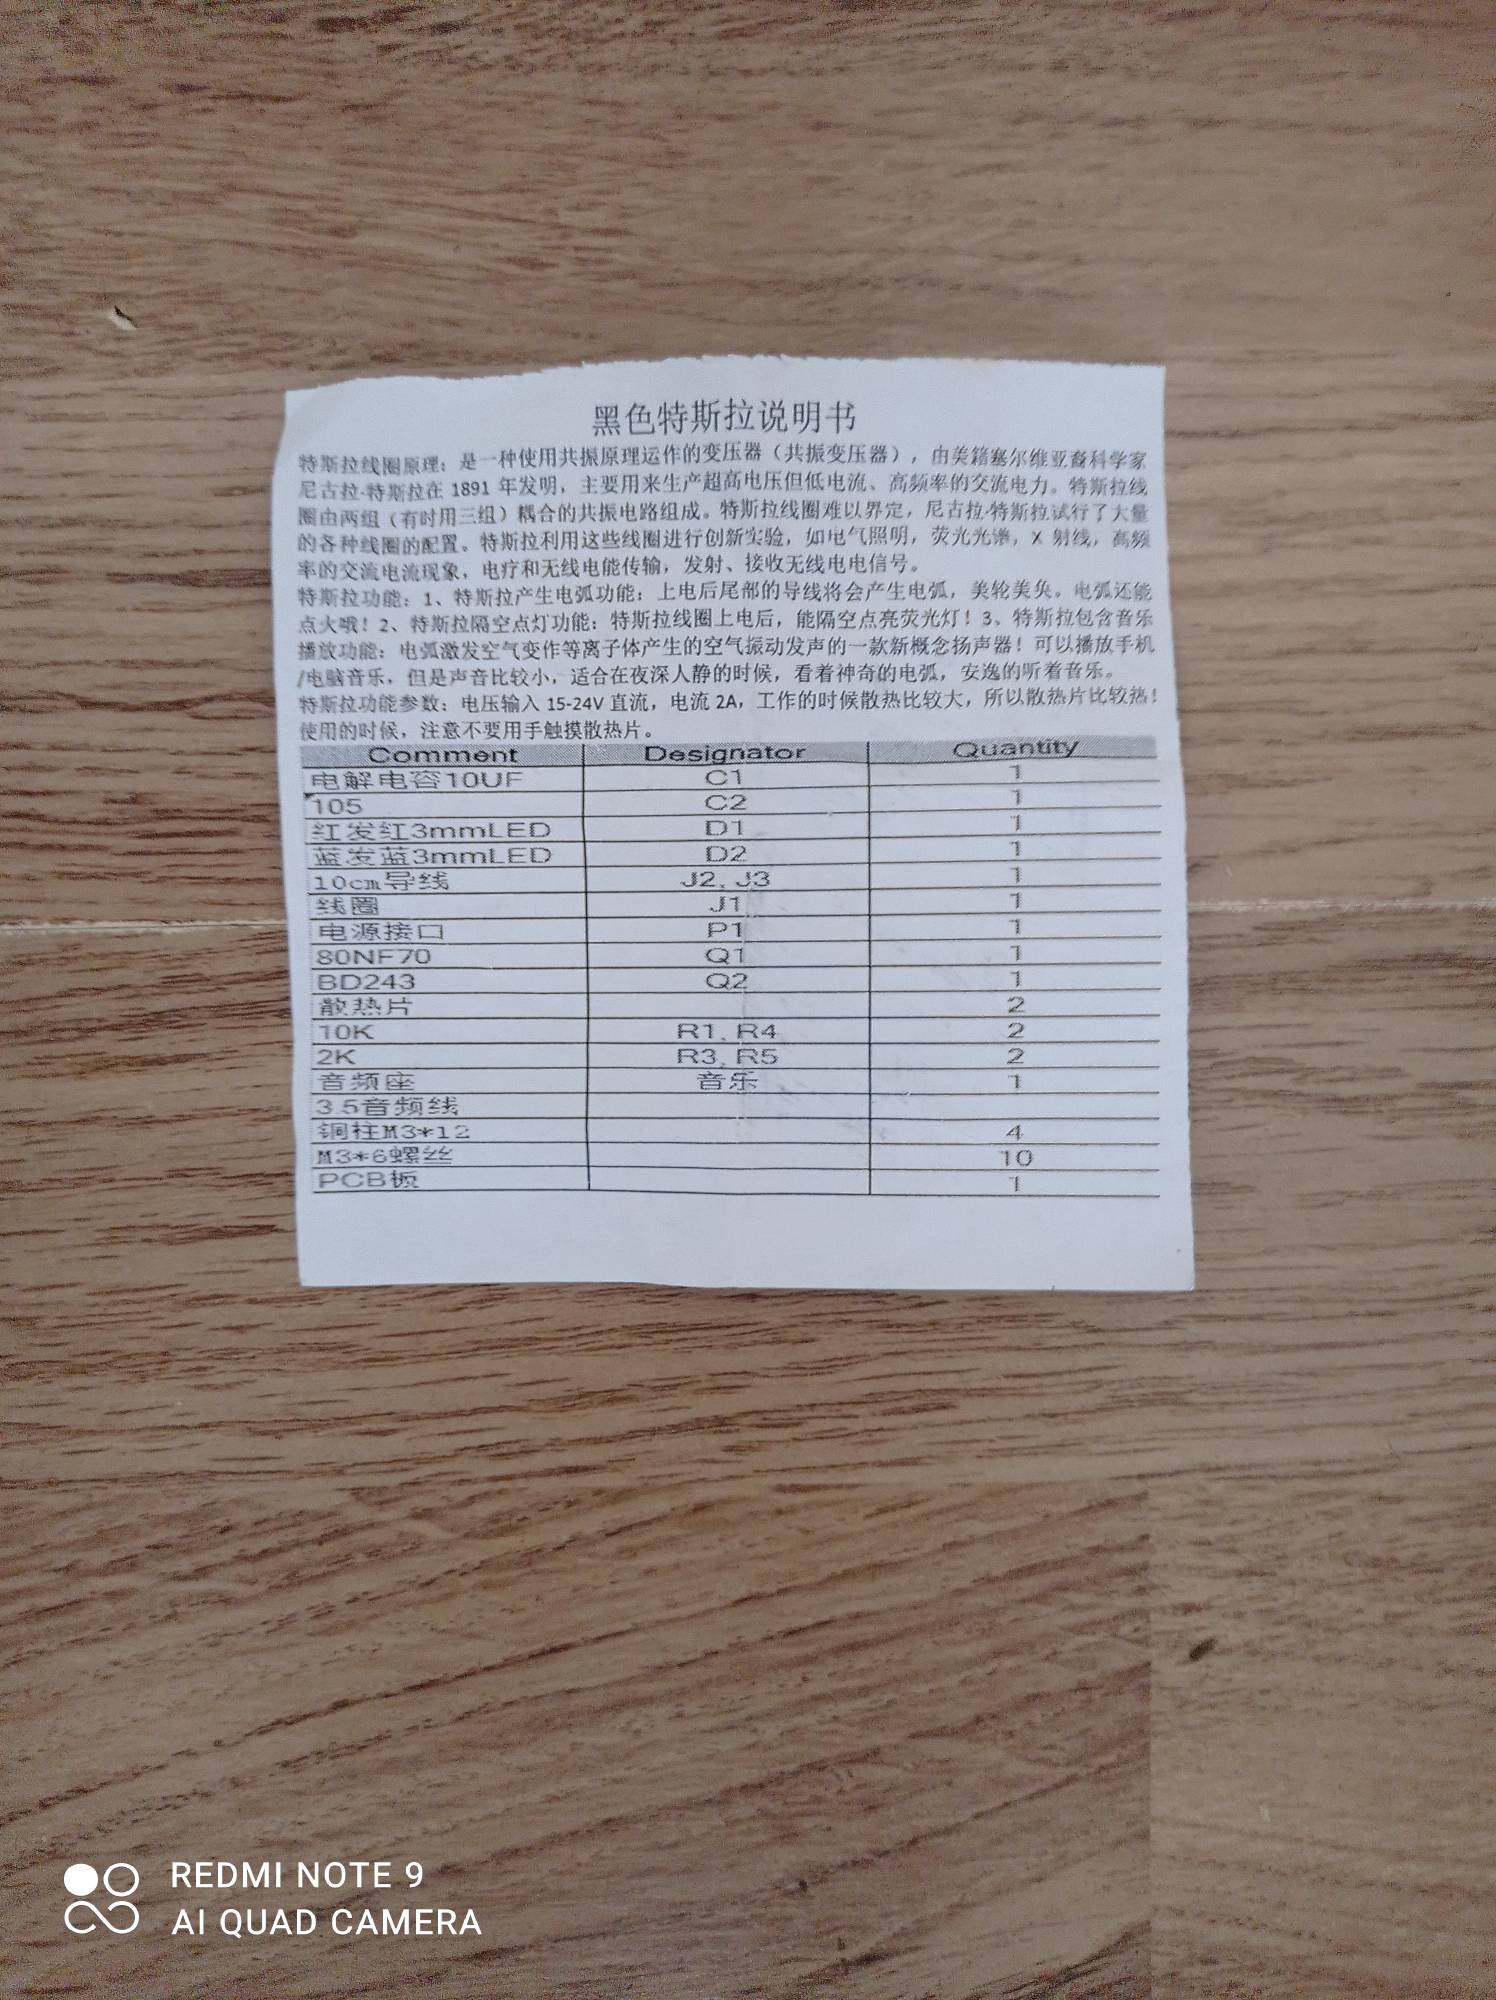 黑色特斯拉说明书
特斯拉线圈原理：是一种使用共振原理运作的变压器（共振变压器），由美籍塞尔维亚裔科学家
尼古拉·特斯拉在 1891 年发明，主要用来生产超高电压但低电流、高频率的交流电力。特斯拉线
圈由两组（有时用三组）耦合的共振电路组成。特斯拉线圈难以界定，尼古拉·特斯拉试行了大量
的各种线圈的配置。特斯拉利用这些线圈进行创新实验，如电气照明，荧光光谱，X 射线，高频
率的交流电流现象，电疗和无线电能传输，发射、接收无线电电信号。
特斯拉功能：1、特斯拉产生电弧功能：上电后尾部的导线将会产生电弧，美轮美奂。电弧还能
点火哦！2、特斯拉隔空点灯功能：特斯拉线圈上电后，能隔空点亮荧光灯！3、特斯拉包含音乐
播放功能：电弧激发空气变作等离子体产生的空气振动发声的一款新概念扬声器！可以播放手机
/电脑音乐，但是声音比较小，适合在夜深人静的时候，看着神奇的电弧，安逸的听着音乐。
特斯拉功能参数：电压输入 15-24V 直流，电流 2A，工作的时候散热比较大，所以散热片比较热！
使用的时候，注意不要用手触摸散热片。
Comment Designator Quantity
电解电容10UF C1 1
105 C2 1
红发红3mmLED D1 1
蓝发蓝3mmLED D2 1
10cm导线 J2, J3 1
线圈 J1 1
电源接口 P1 1
80NF70 Q1 1
BD243 Q2 1
散热片 2
10K R1, R4 2
2K R3, R5 2
音频座 音乐 1
3.5音频线
铜柱M3*12 4
M3*6螺丝 10
PCB板 1
REDMI NOTE 9
AI QUAD CAMERA